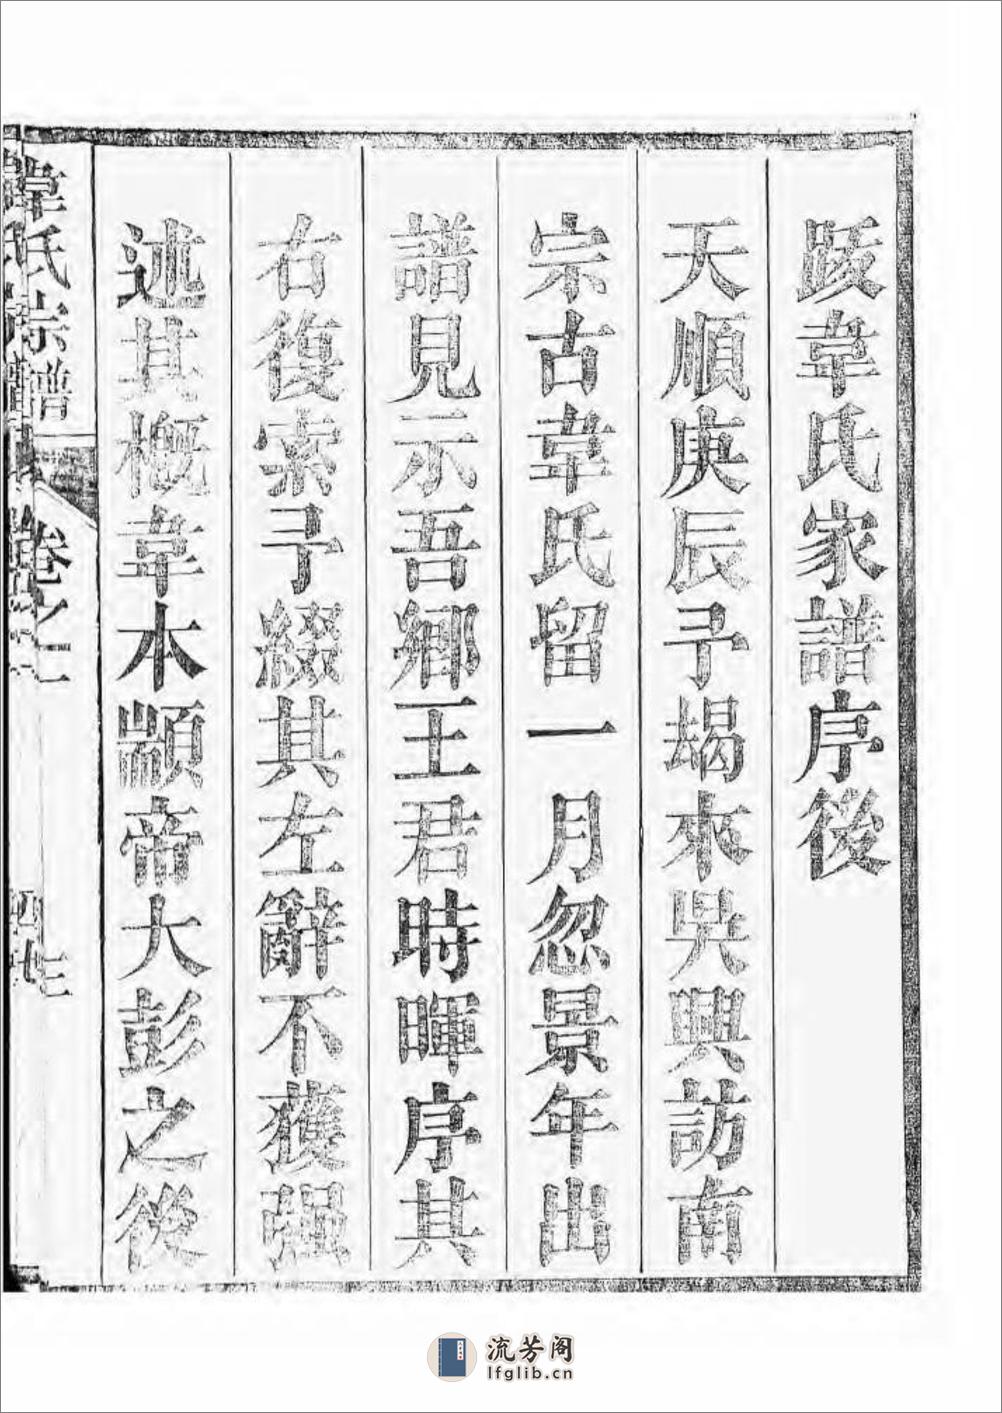 跋韋氏家譜序後
天順庚辰予朅來吳興訪南
宗古韋氏留一月忽景年出
譜見示吾鄉王君時暉序其
右復索予綴其左辭不獲强
述其槪韋本顓帝大彭之後
韋氏宗譜 卷之二
流芳阁
lfglib.cn